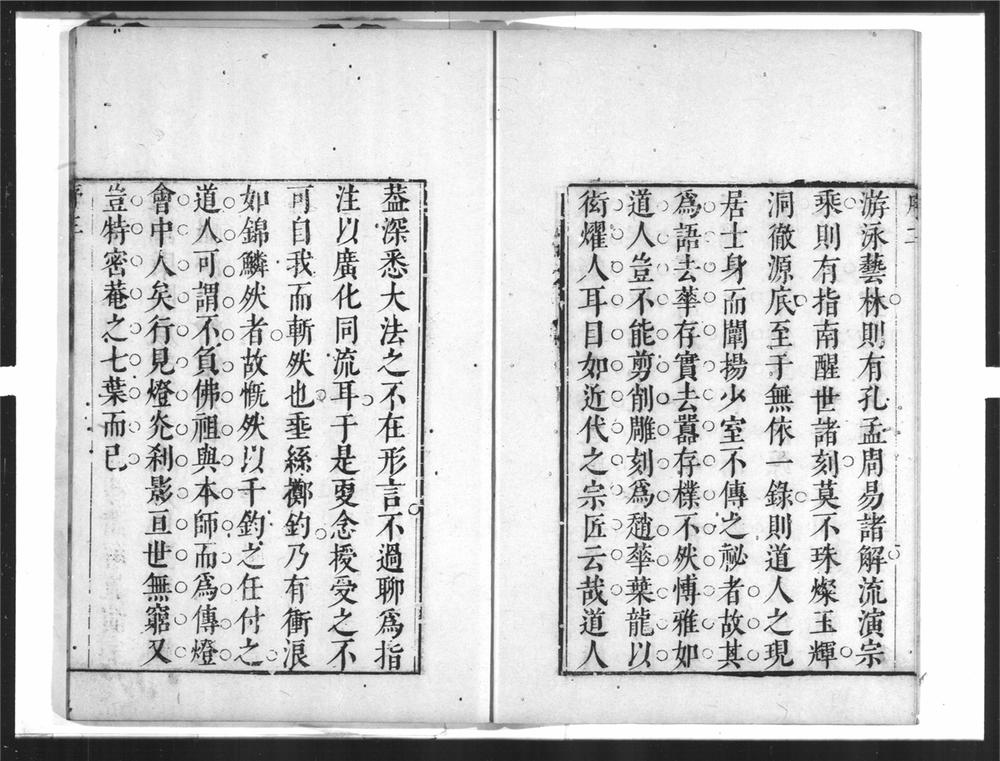 序二
游泳藝林則有孔孟周易諸解流演宗
乘則有指南醒世諸刻莫不珠燦玉輝
洞徹源底至于無依一錄則道人之現
居士身而闡揚少室不傳之祕者故其
爲語去華存實去囂存樸不然愽雅如
道人豈不能剪削雕刻爲趙華葉龍以
衒燿人耳目如近代之宗匠云哉道人
葢深悉大法之不在形言不過聊爲指
注以廣化同流耳于是更念授受之不
可自我而斬然也垂絲擲釣乃有衝浪
如錦鱗然者故慨然以千鈞之任付之
道人可謂不負佛祖與本師而爲傳燈
會中人矣行見燈灮刹影亘世無窮又
豈特密菴之七葉而已
序三